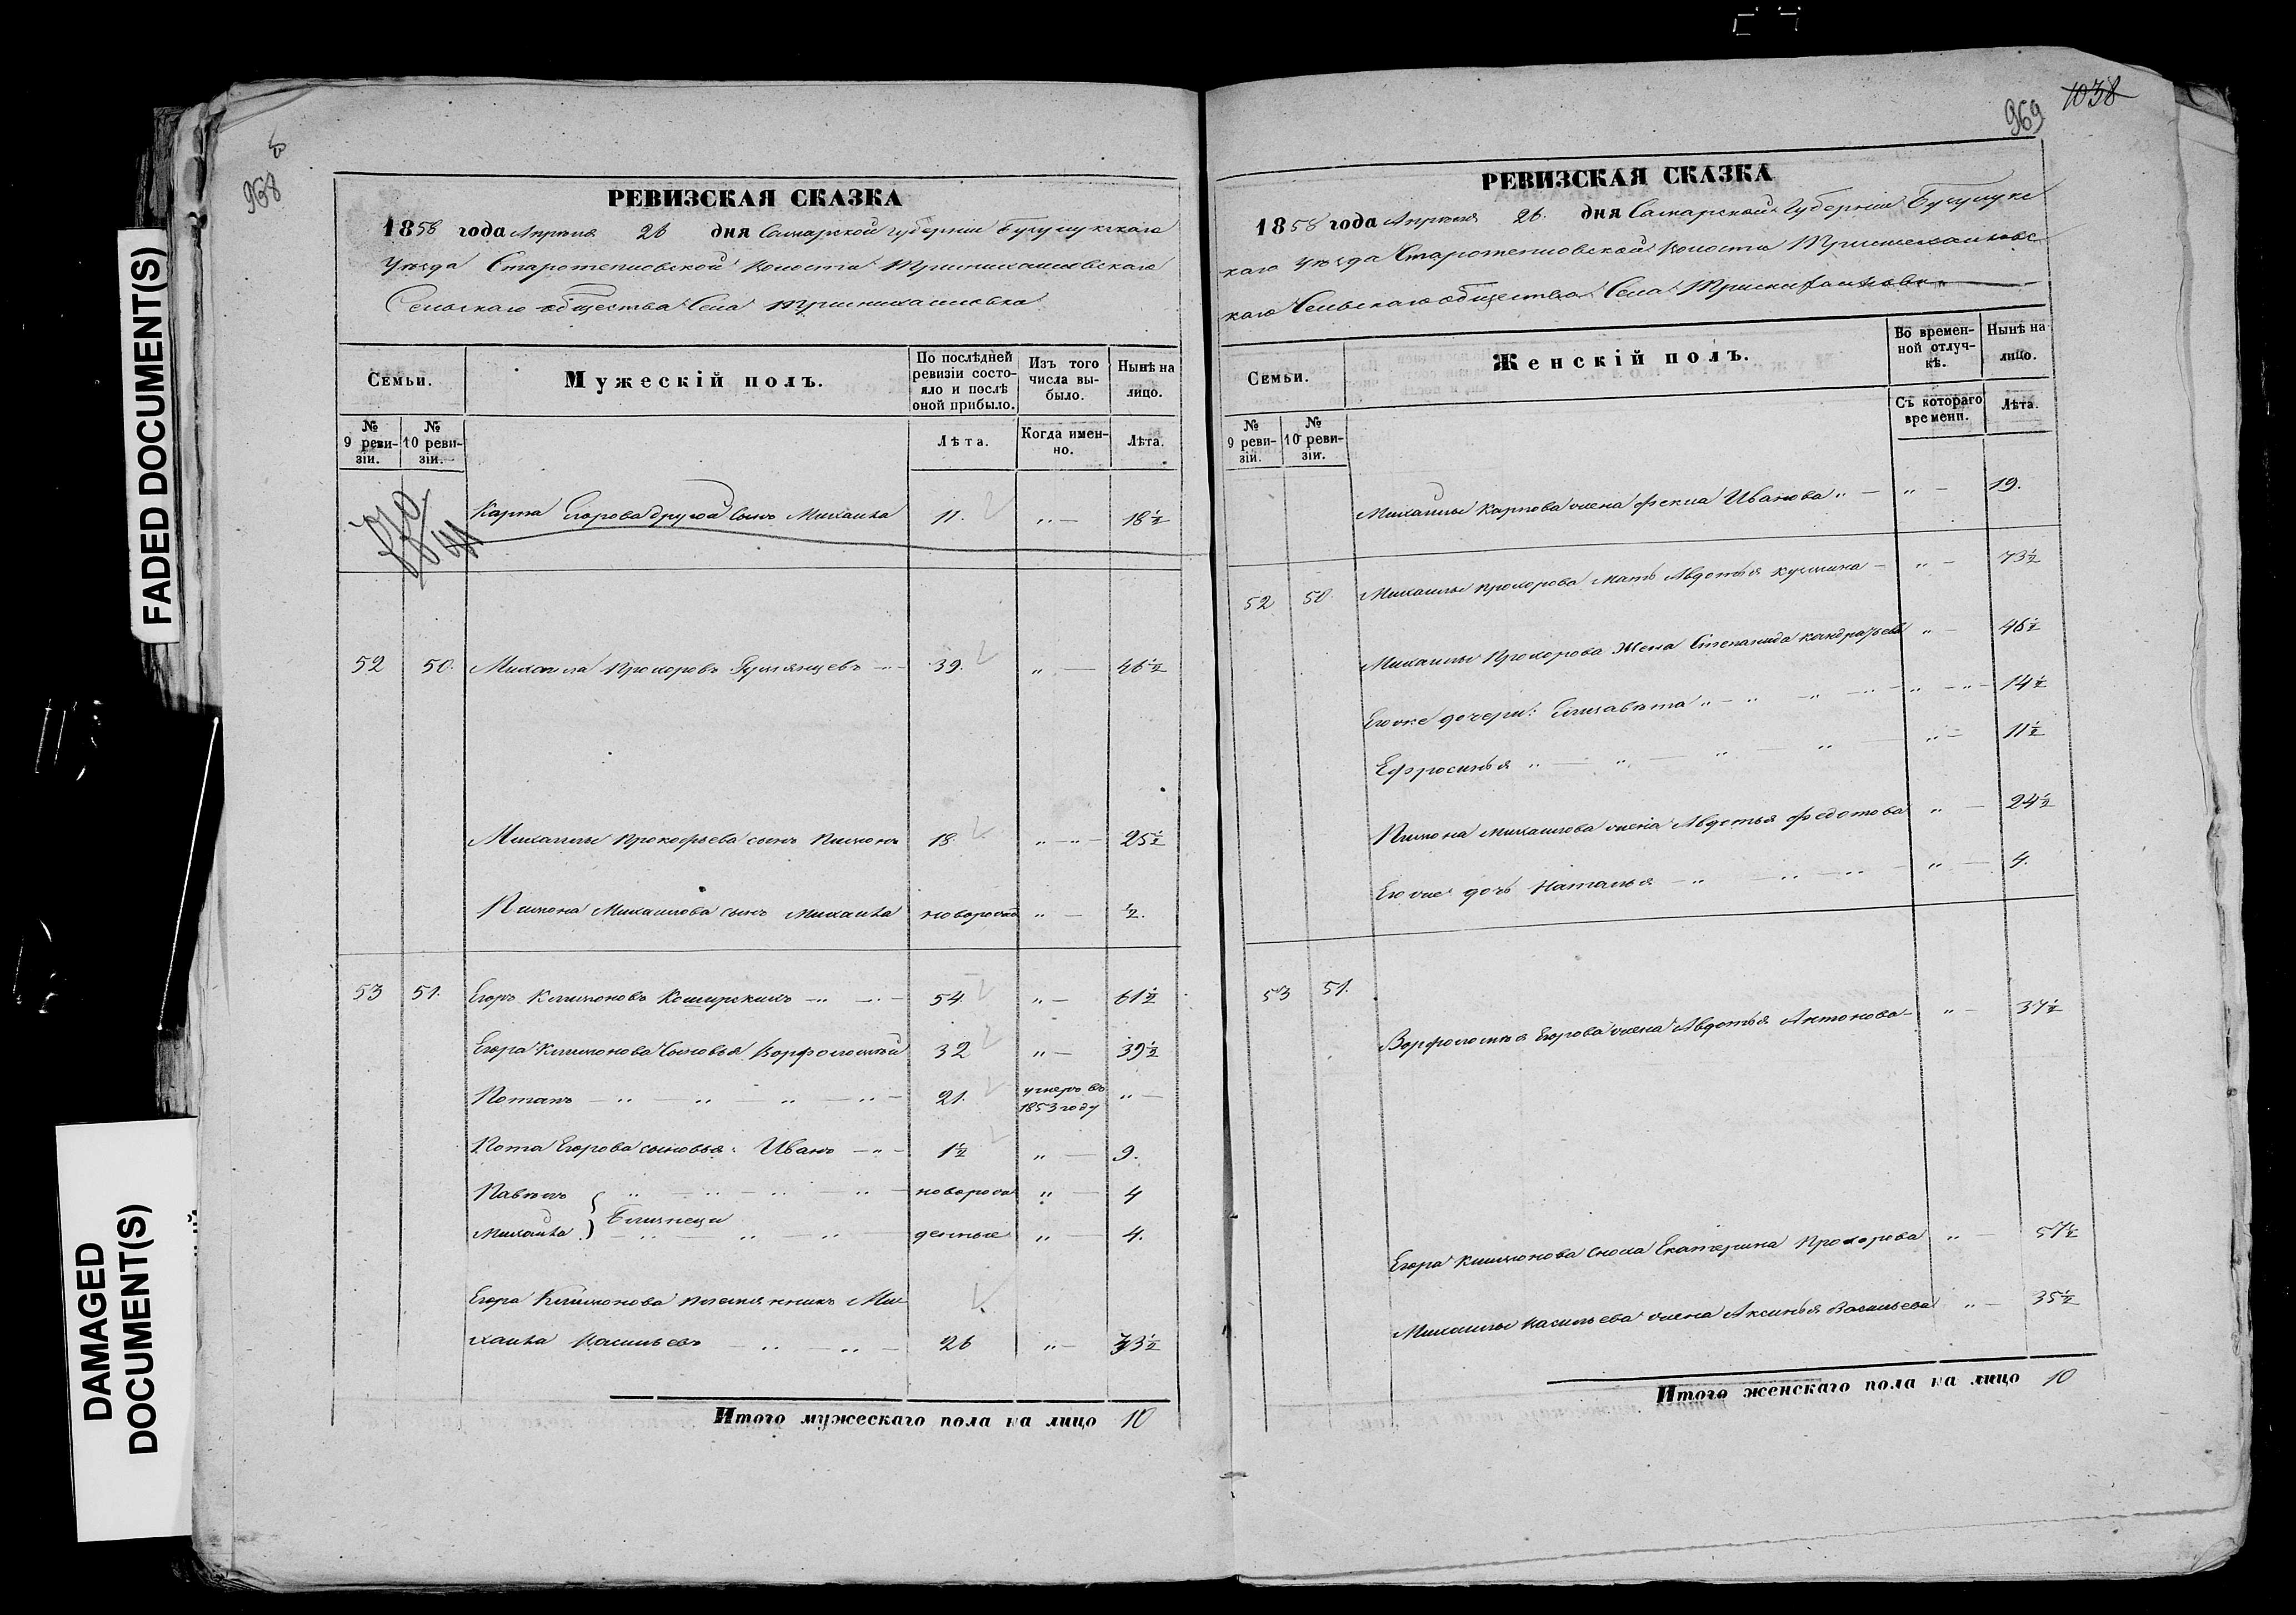 FADED DOCUMENT(S)
DAMAGED
DOCUMENT(S)
968
РЕВИЗСКАЯ СКАЗКА
1858 года Апреля 26 дня Самарской губернии Бузулукскаго
Уезда Старотепловской Волости
Сельскаго общества Села
Семьи.
Мужескій полъ.
По послѣдней ревизіи состояло и послѣ оной прибыло.
Изъ того числа выбыло.
Нынѣ на лицо.
№ 9 ревизіи.
№ 10 ревизіи.
Лѣта.
Когда именно.
Лѣта.
Карпа Егорова другой сынъ Михаила 11. „ — 18½
52 50. Михаила Прохоровъ 39. „ — 46½
Михаилы Прокофьева сынъ Пимонъ 18. „ — „ — 25½
Пимона Михаилова сынъ Михаила новорожд „ — ½.
53 51. Егоръ Климоновъ Коширскихъ 54. „ — 61½
Егора Климонова сыновья Ворфоломей 32 „ — 39½
Потапъ 21. умеръ въ 1853 году „ —
Пота Егорова сыновья: Иванъ 1½ „ — 9.
Павелъ } близнецы новорож „ — 4
Михаила } денные „ — 4.
Егора Климонова племянникъ Ми-
хаила Васильевъ 26 „ — 33½
Итого мужескаго пола на лицо 10
969 1038
РЕВИЗСКАЯ СКАЗКА
1858 года Апреля 26. дня Самарской Губерніи Бузулукс
каго Уезда Старотепловской Волости
каго Сельскаго общества Села
Семьи.
Женскій полъ.
Во временной отлучкѣ.
Нынѣ на лицо.
№ 9 ревизіи.
№ 10 ревизіи.
Съ котораго времени.
Лѣта.
Михаилы Карпова жена Фекла Иванова „ — „ — 19.
52 50. Михаилы Прохорова мать Авдотья Кузмина — „ — 73½
Михаилы Прохорова Жена Степанида Кондратьева „ — 46½
Его же дочери: Елизавета „ — „ — 14½
Ефросинья „ — „ — 11½
Пимона Михаилова жена Авдотья Федотова „ — 24½
Его же дочь Наталья „ — „ — 4.
53 51. Ворфоломея Егорова жена Авдотья Антонова „ — 37½
Егора Климонова сноха Екатерина Прохорова „ — 57½
Михаилы Васильева жена Аксинья Васильева „ — 35½
Итого женскаго пола на лицо 10